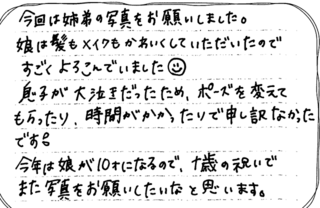 今回は姉弟の写真をお願いしました。
娘は髪もメイクもかわいくしていただいたので
すごくよろこんでいました☺
息子が大泣きだったため、ポーズを変えて
もらったり、時間がかかったりで申し訳なかった
です。
今年は娘が10才になるので、十歳の祝いで
また写真をお願いしたいなと思います。